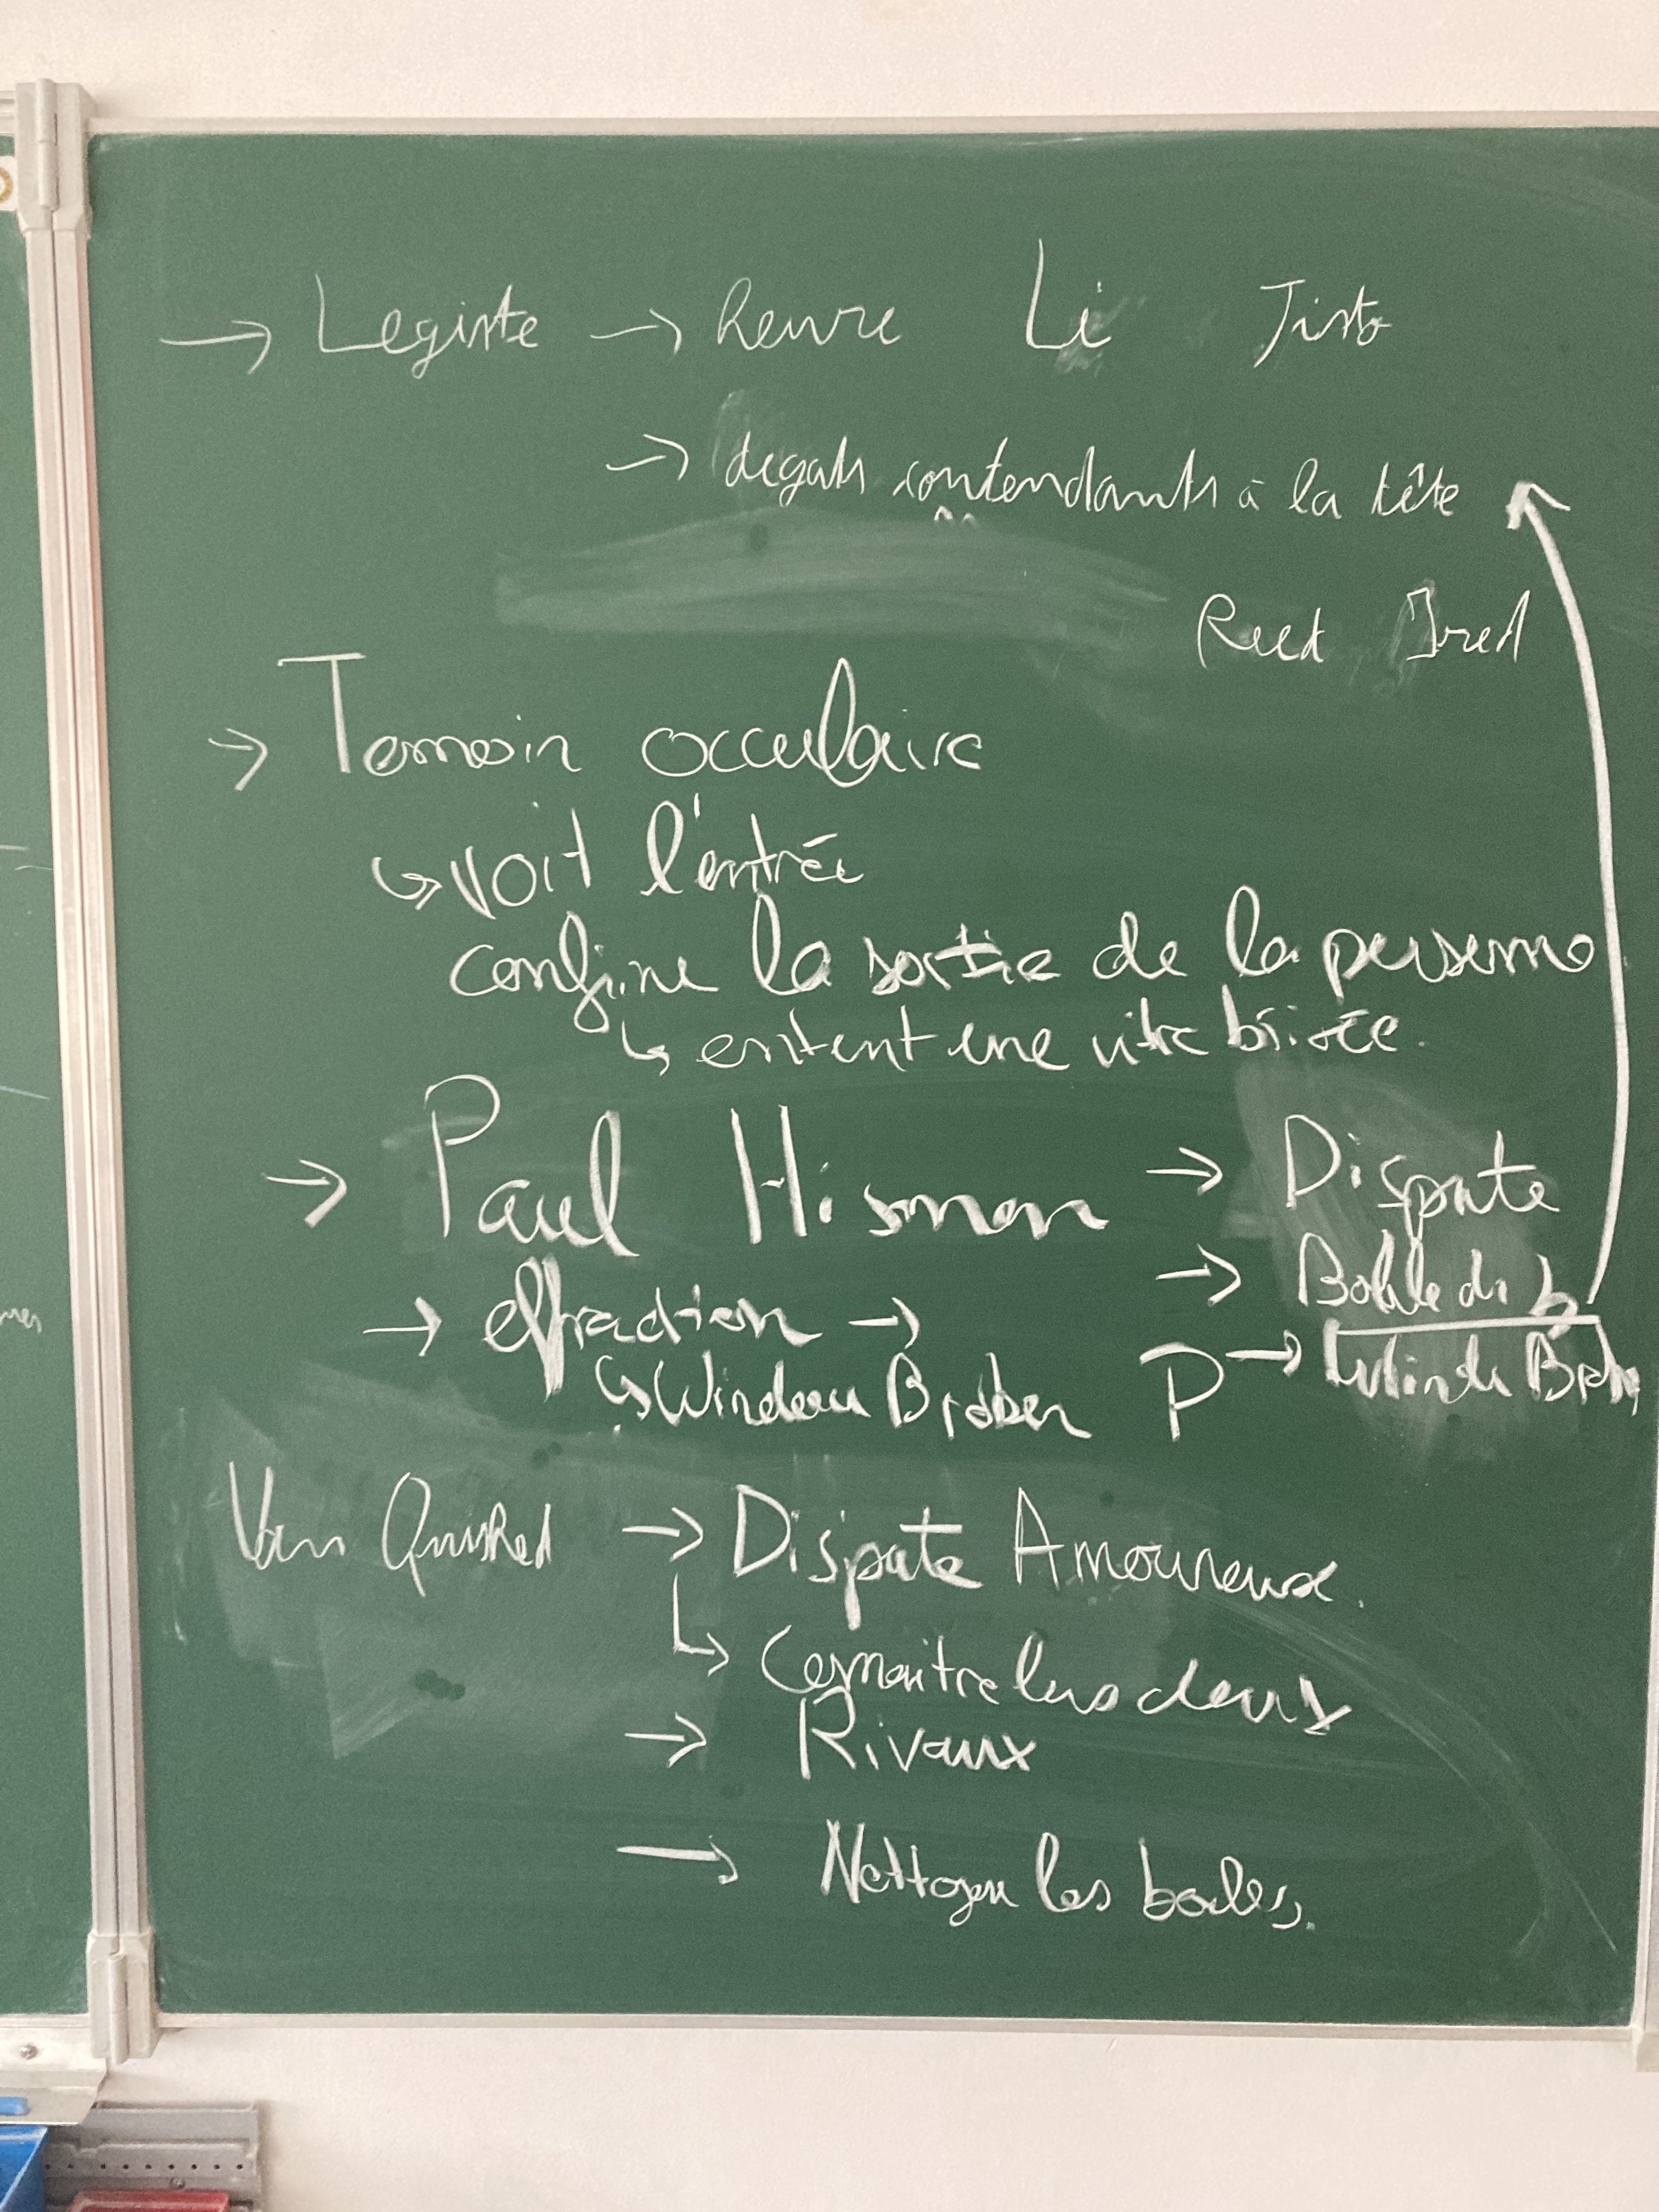 → Legiste → heure Li Jisto
→ degats contendants à la tête
Red
→ Temoin occulaire
↳ voit l'entrée
confine la sortie de la persone
↳ entent une vitre brisée.
→ Paul Hismon → Dispute
→ effraction → → Balle de b
↳ Window Broken P →
Van → Dispute Amoureuse.
↳ Connaitre les deux
→ Rivaux
→ Nettoyer les balles.